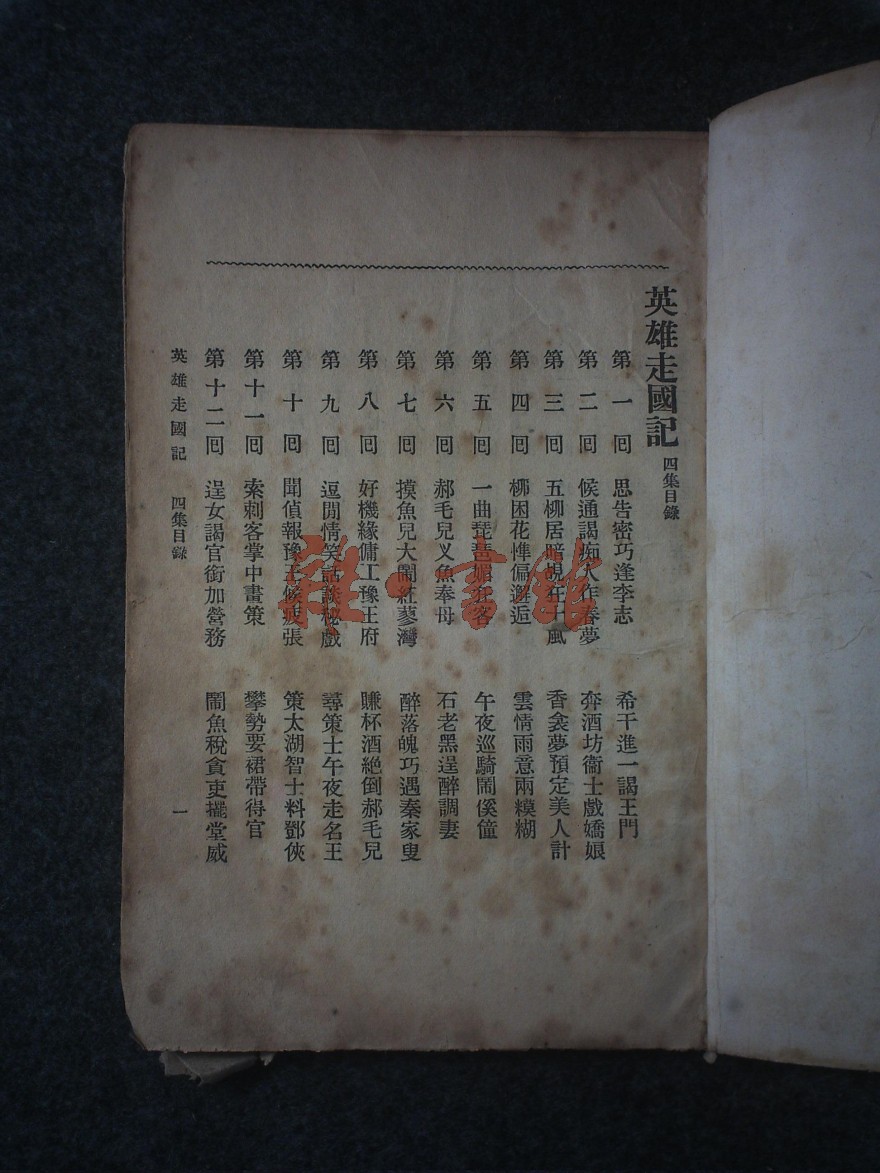 英雄走國記 四集目錄
第一回 思告密巧逢李志 希干進一謁王門
第二回 候通謁痴人作春夢 奔酒坊衞士戲嬌娘
第三回 五柳居暗覘狂士風 香衾夢預定美人計
第四回 柳困花慵偏邂逅 雲情雨意兩糢糊
第五回 一曲琵琶媚狂客 午夜巡騎鬧傒僮
第六回 郝毛兒叉魚奉母 石老黑逞醉調妻
第七回 摸魚兒大鬧紅蓼灣 醉落魄巧遇秦家叟
第八回 好機緣傭工豫王府 賺杯酒絕倒郝毛兒
第九回 逗閒情笑話談秘戲 尋策士午夜走名王
第十回 聞偵報豫王候疲張 策太湖智士料鄧俠
第十一回 索刺客掌中畫策 攀勢要裙帶得官
第十二回 逞女謁官銜加營務 鬧魚稅貪吏擺堂威
英雄走國記 四集目錄 一
雜·書館